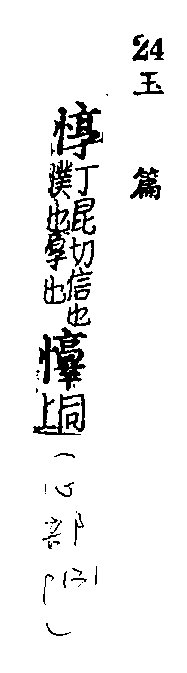 24
玉篇
惇
丁昆切信也
樸也厚也
同
上
(心部
P131)